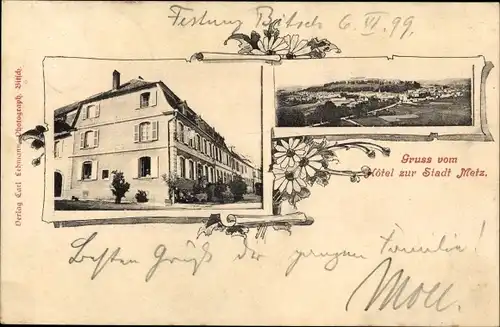 Festung Bitsch 6. VI. 99.
Verlag Carl Lehmann, Photograph, Bitsch.
Gruss vom
Hôtel zur Stadt Metz.
Besten Gruß der ganzen Familie!
Moll